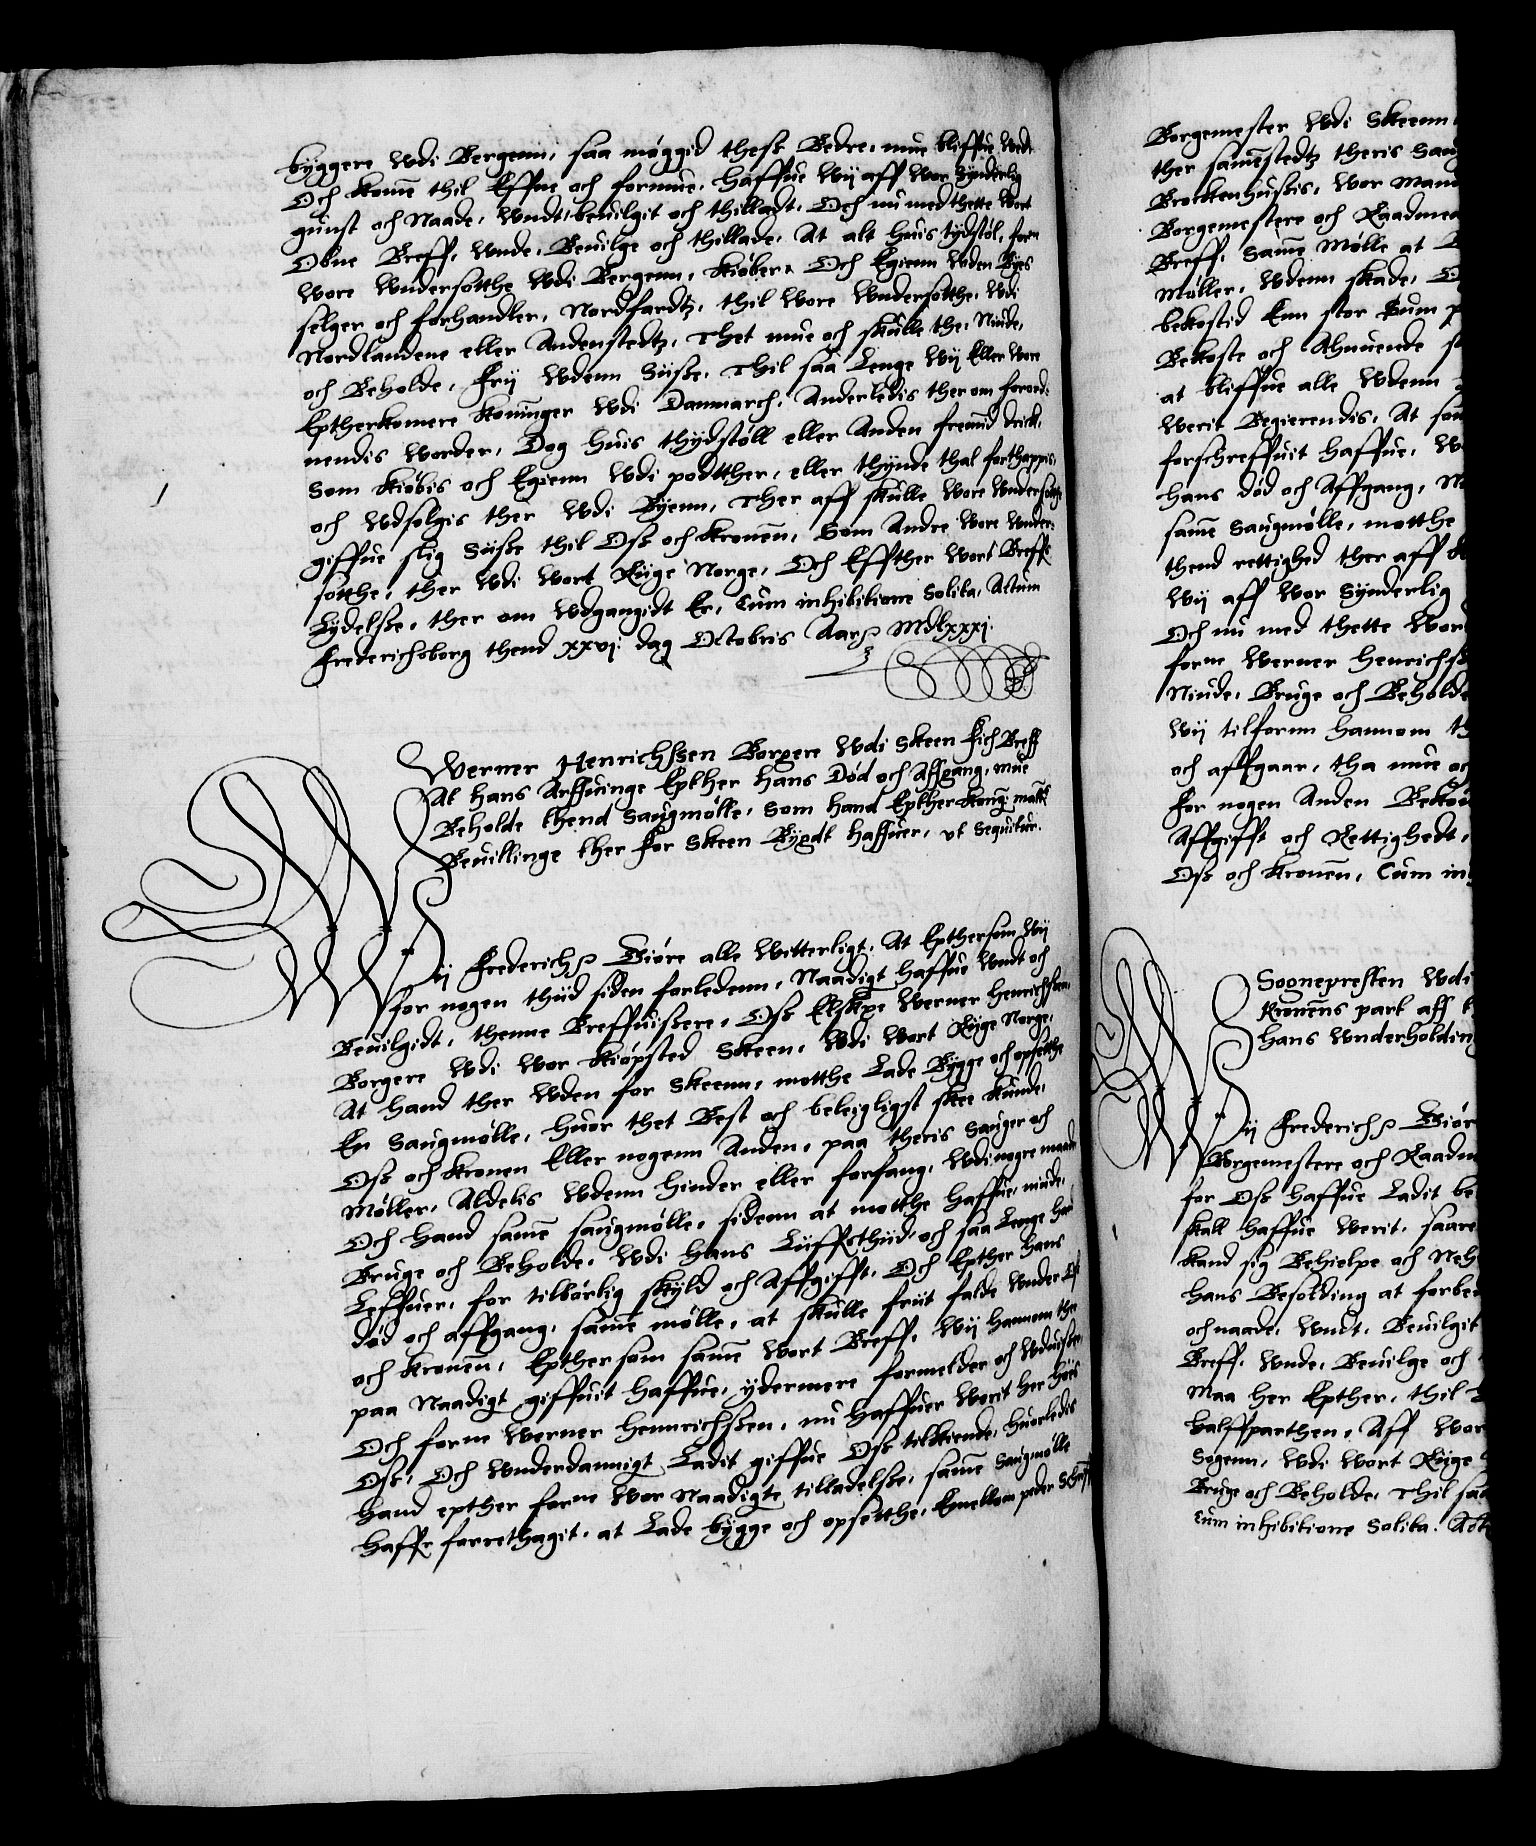 byggere Udi Bergenn, saa møggid thess Bedre, mue bliffue wed
Och komē thil Effne och formue. Haffue Wij aff Wor Synderlig
gunst och Naade, Undt, beuilgit och thilladt, Och nu med thette Wort
Obne Breff, Unde, Beuilge och thillade, At alt huis tydstøl, forne
Wore Undersotthe Udi Bergenn, kiøber, Och Egienn Uden Byes
selger och forhandler, Nordfardtz, thil Wore Undersotthe, Udi
Nordlandene eller Andenstedtz, Thet mue och skulle the, Niude,
och Beholde, frij Udenn Siisse, Thil saa Lenge Wij Eller Wore
Eptherkomere koninger Udi Danmarch, Anderledis ther om forord-
nendis Worder, Dog huis thydstøll eller Anden fremmid drick,
Som kiøbis och Egienn Udi podtther, eller thynde thal forthappis,
och Udselgis ther Udi Byenn, Ther aff skulle Wore Undersotthe
giffue slig Siisse thil Oss och kronenn, Som Andre Wore Under-
sotthe, ther Udi Wort Riige Norge, Och Effther Wort Breffs
Lydelsse, ther om Udgangidt Er, Cum inhibitione Solita, Actum
Frederichsborg thend xxvj dag Octobris Aar &c. Mdlxxxj.
Werner Henrichssen Borgere Udi Skeen fich Breff
At hans Arffuinge Epther hans Død och Affgang, mue
Beholde thend Saugmølle, Som hand Epther Kong: Matts
Beuillinge ther for Skeen Bygdt haffuer, ut Sequitur.
Wij Frederich &c. Giøre alle Witterligt, At Epthersom Wij
for nogen thiid siden forledenn, Naadigt haffue Undt och
Beuilgidt, thenne Breffuissere, Oss Elskge Werner Henrichssen,
Borgere Udi Wor kiøpsted Skeen, Udi Wort Riige Norge,
At hand ther Uden for Skeenn, motthe Lade Bygge och opsetthe
En Saugmølle, huor thet Best och beleigligst skee kunde,
Oss och kronen Eller nogenn Anden, paa theris Sauger och
Møller, Aldelis Udenn hinder eller forfang, Udi nogre maade
Och hand samē saugmølle, sidenn at motthe haffue, niude,
Bruge och Beholde, Udi hans Liiffsthiid, och saa Lenge hand
Leffuer, for tilbørlig skyld och Affgifft, Och Epther hans
død och affgang, samme mølle, at skulle friit falde Under Oss
och kronenn, Epthersom samē Wort Breff, Wij hannom ther
paa Naadigt giffuit haffue, ydermere formelder och Uduisser,
Och forne Werner Hennrichssen, nu haffuer Werit her hoss
Oss, Och Underdannigt Ladit giffue Oss tilkiende, huorledis
hand epther forne Wor Naadigte tilladelsse, samē Saugmølle
haffr forrethagit, at Lade bygge och opsetthe, Emellom peder Schriffu
Borgemester Udi Skeenn
ther samestedtz theris Saug
Brockenhussis, Wor Mand
Borgemestere och Raadmend
Breff, Samē Mølle at B
Møller, Udenn skade, O
bekostid Enn stor Sum p
Bekoste och Anuende
at bliffue alle Udenn
Werit Begierendis, At som
forschreffuit haffue, W
hans død och Affgang, M
samē Saugmølle, motthe
thend rettighed ther aff k
Wij aff Wor Synderlig
Och nu med thette Wort
forne Werner Henrichss
Niude, Bruge och Beholde
Wij tilfornn hannom th
och affgaar, tha mue oc
for nogen Anden Bekom
Affgifft och Rettighedt,
Oss och kronenn, Cum in
Sognepresten Udi
Kronens part aff t
hans Underholding
Wij Frederich &c. Giøre
Borgemestere och Raadm
for Oss haffue Ladit be
skall haffue Werit, saare
kand sig Behielpe och Neh
hans Besolding at forbe
och naade, Undt, Beuilgit
Breff, Unde, Beuilge och
Maa her Epther, thil
halffparthen, Aff Wor
Sogenn, Udi Wort Riige
Bruge och Beholde, Thil saa
cum inhibitione Solita. Act